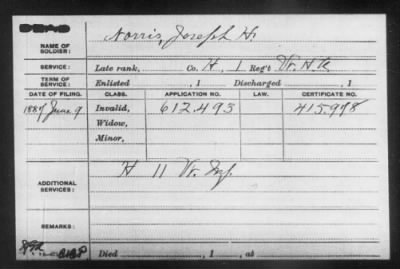 DEAD
Norris, Joseph H.
NAME OF SOLDIER:
SERVICE: Late rank, Co. H, 1 Reg't Vt. H.A.
TERM OF SERVICE: Enlisted , 1 Discharged , 1
DATE OF FILING. CLASS. APPLICATION NO. LAW. CERTIFICATE NO.
1887 June 9 Invalid, 612.493 415.998
Widow,
Minor,
ADDITIONAL SERVICES: H 11 Vt. Inf.
REMARKS:
Died , 1 , at